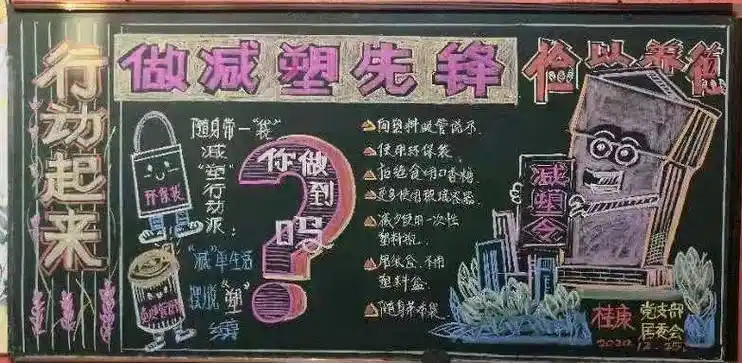 行动起来
做减塑先锋
俭以养德
随身带一“袋”
减
“塑”
行动派：
环保袋
“减”单生活
摆脱“塑”
缚
你做到吗
向塑料吸管说不
使用环保袋
拒绝食用口香糖
更多使用玻璃容器
减少使用一次性
塑料瓶
用纸盒，不用
塑料盒
随身带布袋
减塑令
桂康
党支部
居委会
2020.12.25